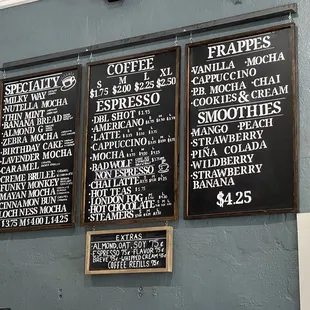 SPECIALTY
MILKY WAY
NUTELLA MOCHA
THIN MINT
BANANA BREAD
ALMOND
ZEBRA MOCHA
BIRTHDAY CAKE
LAVENDER MOCHA
CARAMEL
CREME BRULEE
FUNKY MONKEY
MAYAN MOCHA
CINNAMON BUN
LOCH NESS MOCHA
3.75 4.25
COFFEE
S M L XL
$1.75 $2.00 $2.25 $2.50
ESPRESSO
DBL SHOT $1.75
AMERICANO
LATTE
CAPPUCCINO
MOCHA
BAD WOLF
NON ESPRESSO
CHAI LATTE
HOT TEAS
LONDON FOG
HOT CHOCOLATE
STEAMERS
EXTRAS
ALMOND, OAT, SOY 75¢
ESPRESSO 75¢ FLAVOR 75¢
BREVE 75¢ WHIPPED CREAM
COFFEE REFILLS 75¢
FRAPPES
VANILLA - MOCHA
CAPPUCCINO
P.B. MOCHA - CHAI
COOKIES & CREAM
SMOOTHIES
MANGO - PEACH
STRAWBERRY
PIÑA COLADA
WILDBERRY
STRAWBERRY
BANANA
$4.25